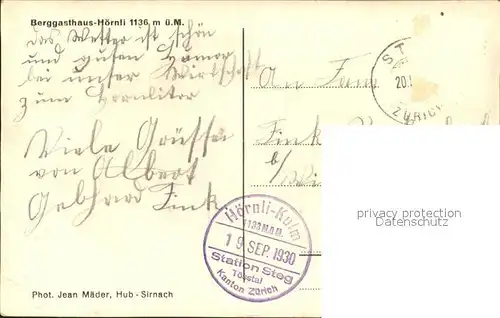 Berggasthaus-Hörnli 1136 m ü.M.
das Wetter ist schön
und guten Humor
bei unser Wirtschaft
zum Hörnliter
Viele Grüsse
von Albert
Gebhard Fink
Phot. Jean Mäder, Hub - Sirnach
An Fam
Fink
b/
ST
20.
ZÜRICH
Hörnli-Kulm
1136 M.Ü.M.
19 SEP. 1930
Station Steg
Tösstal
Kanton Zürich
privacy protection
Datenschutz